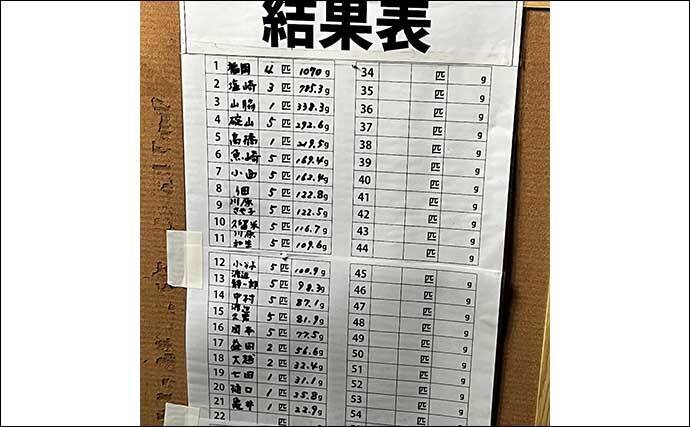 結果表
1 福岡 4匹 1070g
2 塩崎 3匹 785.3g
3 山脇 1匹 338.3g
4 碇山 5匹 292.6g
5 高橋 1匹 219.5g
6 魚崎 5匹 169.4g
7 小西 5匹 162.4g
8 細 5匹 122.8g
9 川原 5匹 122.5g
10 久留米 5匹 116.7g
11 川原 和生 5匹 109.6g
12 小谷 5匹 100.9g
13 渡辺 5匹 98.3g
14 中村 5匹 87.1g
15 渡辺 5匹 81.9g
16 岡本 5匹 77.5g
17 益田 2匹 56.6g
18 大越 2匹 32.4g
19 七田 1匹 31.1g
20 樋口 1匹 25.8g
21 亀井 1匹 22.9g
22 匹
34 匹 g
35 匹 g
36 匹 g
37 匹 g
38 匹 g
39 匹 g
40 匹 g
41 匹 g
42 匹 g
43 匹 g
44 匹 g
45 匹 g
46 匹 g
47 匹 g
48 匹 g
49 匹 g
50 匹 g
51 匹 g
52 匹 g
53 匹 g
54 匹 g